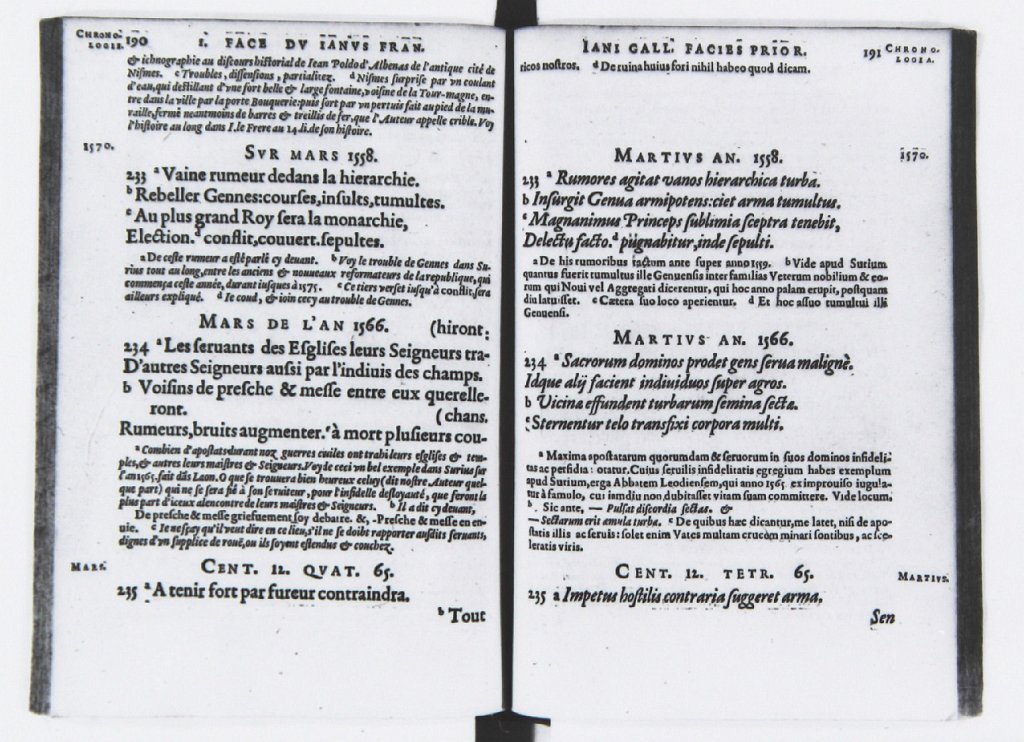 CHRONO-
LOGIE. 190 I. FACE DV IANVS FRAN.
& ichnographie au discours historial de Iean Poldo d'Albenas de l'antique cité de
Nismes. c Troubles, dissensions, partialitez. d Nismes surprise par vn coulant
d'eau, qui destillant d'vne fort belle & large fontaine, voisine de la Tour-magne, en-
tre dans la ville par la porte Bouquerie: puis sort par vn pertuis fait au pied de la mu-
raille, fermé neantmoins de barres & treillis de fer, que l'Auteur appelle crible. Voy
l'histoire au long dans I. le Frere au 14. li. de son histoire.
1570. SVR MARS 1558.
233 a Vaine rumeur dedans la hierarchie.
b Rebeller Gennes: courses, insults, tumultes.
c Au plus grand Roy sera la monarchie,
Election. d conflit, couuert. sepultes.
a De ceste rumeur a esté parlé cy deuant. b Voy le trouble de Gennes dans Su-
rius tout au long, entre les anciens & nouueaux reformateurs de la republique, qui
commença ceste année, durant iusques à 1575. c Ce tiers verset iusqu'à conflit, sera
ailleurs expliqué. d Ie coud, & ioin cecy au trouble de Gennes.
MARS DE L'AN 1566. (hiront:
234 a Les seruants des Esglises leurs Seigneurs tra-
D'autres Seigneurs aussi par l'indiuis des champs.
b Voisins de presche & messe entre eux querelle-
ront. (chans.
Rumeurs, bruits augmenter. c à mort plusieurs cou-
a Combien d'apostats durant noz guerres ciuiles ont trahi leurs esglises & tem-
ples, & autres leurs maistres & Seigneurs. Voy de ceci vn bel exemple dans Surius sur
l'an 1565. fait dãs Laon. O que se trouuera bien heureux celuy (dit nostre Auteur quel-
que part) qui ne se sera fié à son seruiteur, pour l'infidelle desloyauté, que feront la
plus part d'iceux alencontre de leurs maistres & Seigneurs. b Il a dit cy deuant,
De presche & messe griefuement soy debatre. &, -Presche & messe en en-
uie. c Ie ne sçay qu'il veut dire en ce lieu, s'il ne se doibt rapporter ausdits seruants,
dignes d'vn supplice de rouë, ou ils soyent estendus & couchez.
MARS. CENT. 12. QVAT. 65.
235 a A tenir fort par fureur contraindra.
b Tout
IANI GALL. FACIES PRIOR. 191 CHRONO-
LOGIA.
ricos nostros. d De ruina huius fori nihil habeo quod dicam.
MARTIVS AN. 1558. 1570.
233 a Rumores agitat vanos hierarchica turba.
b Insurgit Genua armipotens: ciet arma tumultus.
c Magnanimus Princeps sublimia sceptra tenebit,
Delectu facto. d pugnabitur, inde sepulti.
a De his rumoribus factum ante super anno 1559. b Vide apud Surium
quantus fuerit tumultus ille Genuensis inter familias Veterum nobilium & eo-
rum qui Noui vel Aggregati dicerentur, qui hoc anno palam erupit, postquam
diu latuisset. c Cætera suo loco aperientur. d Et hoc assuo tumultui illi
Genuensi.
MARTIVS AN. 1566.
234 a Sacrorum dominos prodet gens serua malignè.
Idque alij facient indiuiduos super agros.
b Vicinæ effundent turbarum semina sectæ.
c Sternentur telo transfixi corpora multi.
a Maxima apostatarum quorumdam & seruorum in suos dominos infideli-
tas ac perfidia: otatur. Cuius seruilis infidelitatis egregium habes exemplum
apud Surium, erga Abbatem Leodiensem, qui anno 1565 ex improuiso iugula-
tur à famulo, cui iamdiu non dubitasset vitam suam committere. Vide locum.
b Sic ante, — Pulsat discordia sectas. &
— Sectarum erit æmula turba. c De quibus hæc dicantur, me latet, nisi de apo-
statis illis ac seruis: solet enim Vates multam crucem minari sontibus, ac sce-
leratis viris.
CENT. 12. TETR. 65. MARTIVS.
235 a Impetus hostilis contraria suggeret arma.
Sen